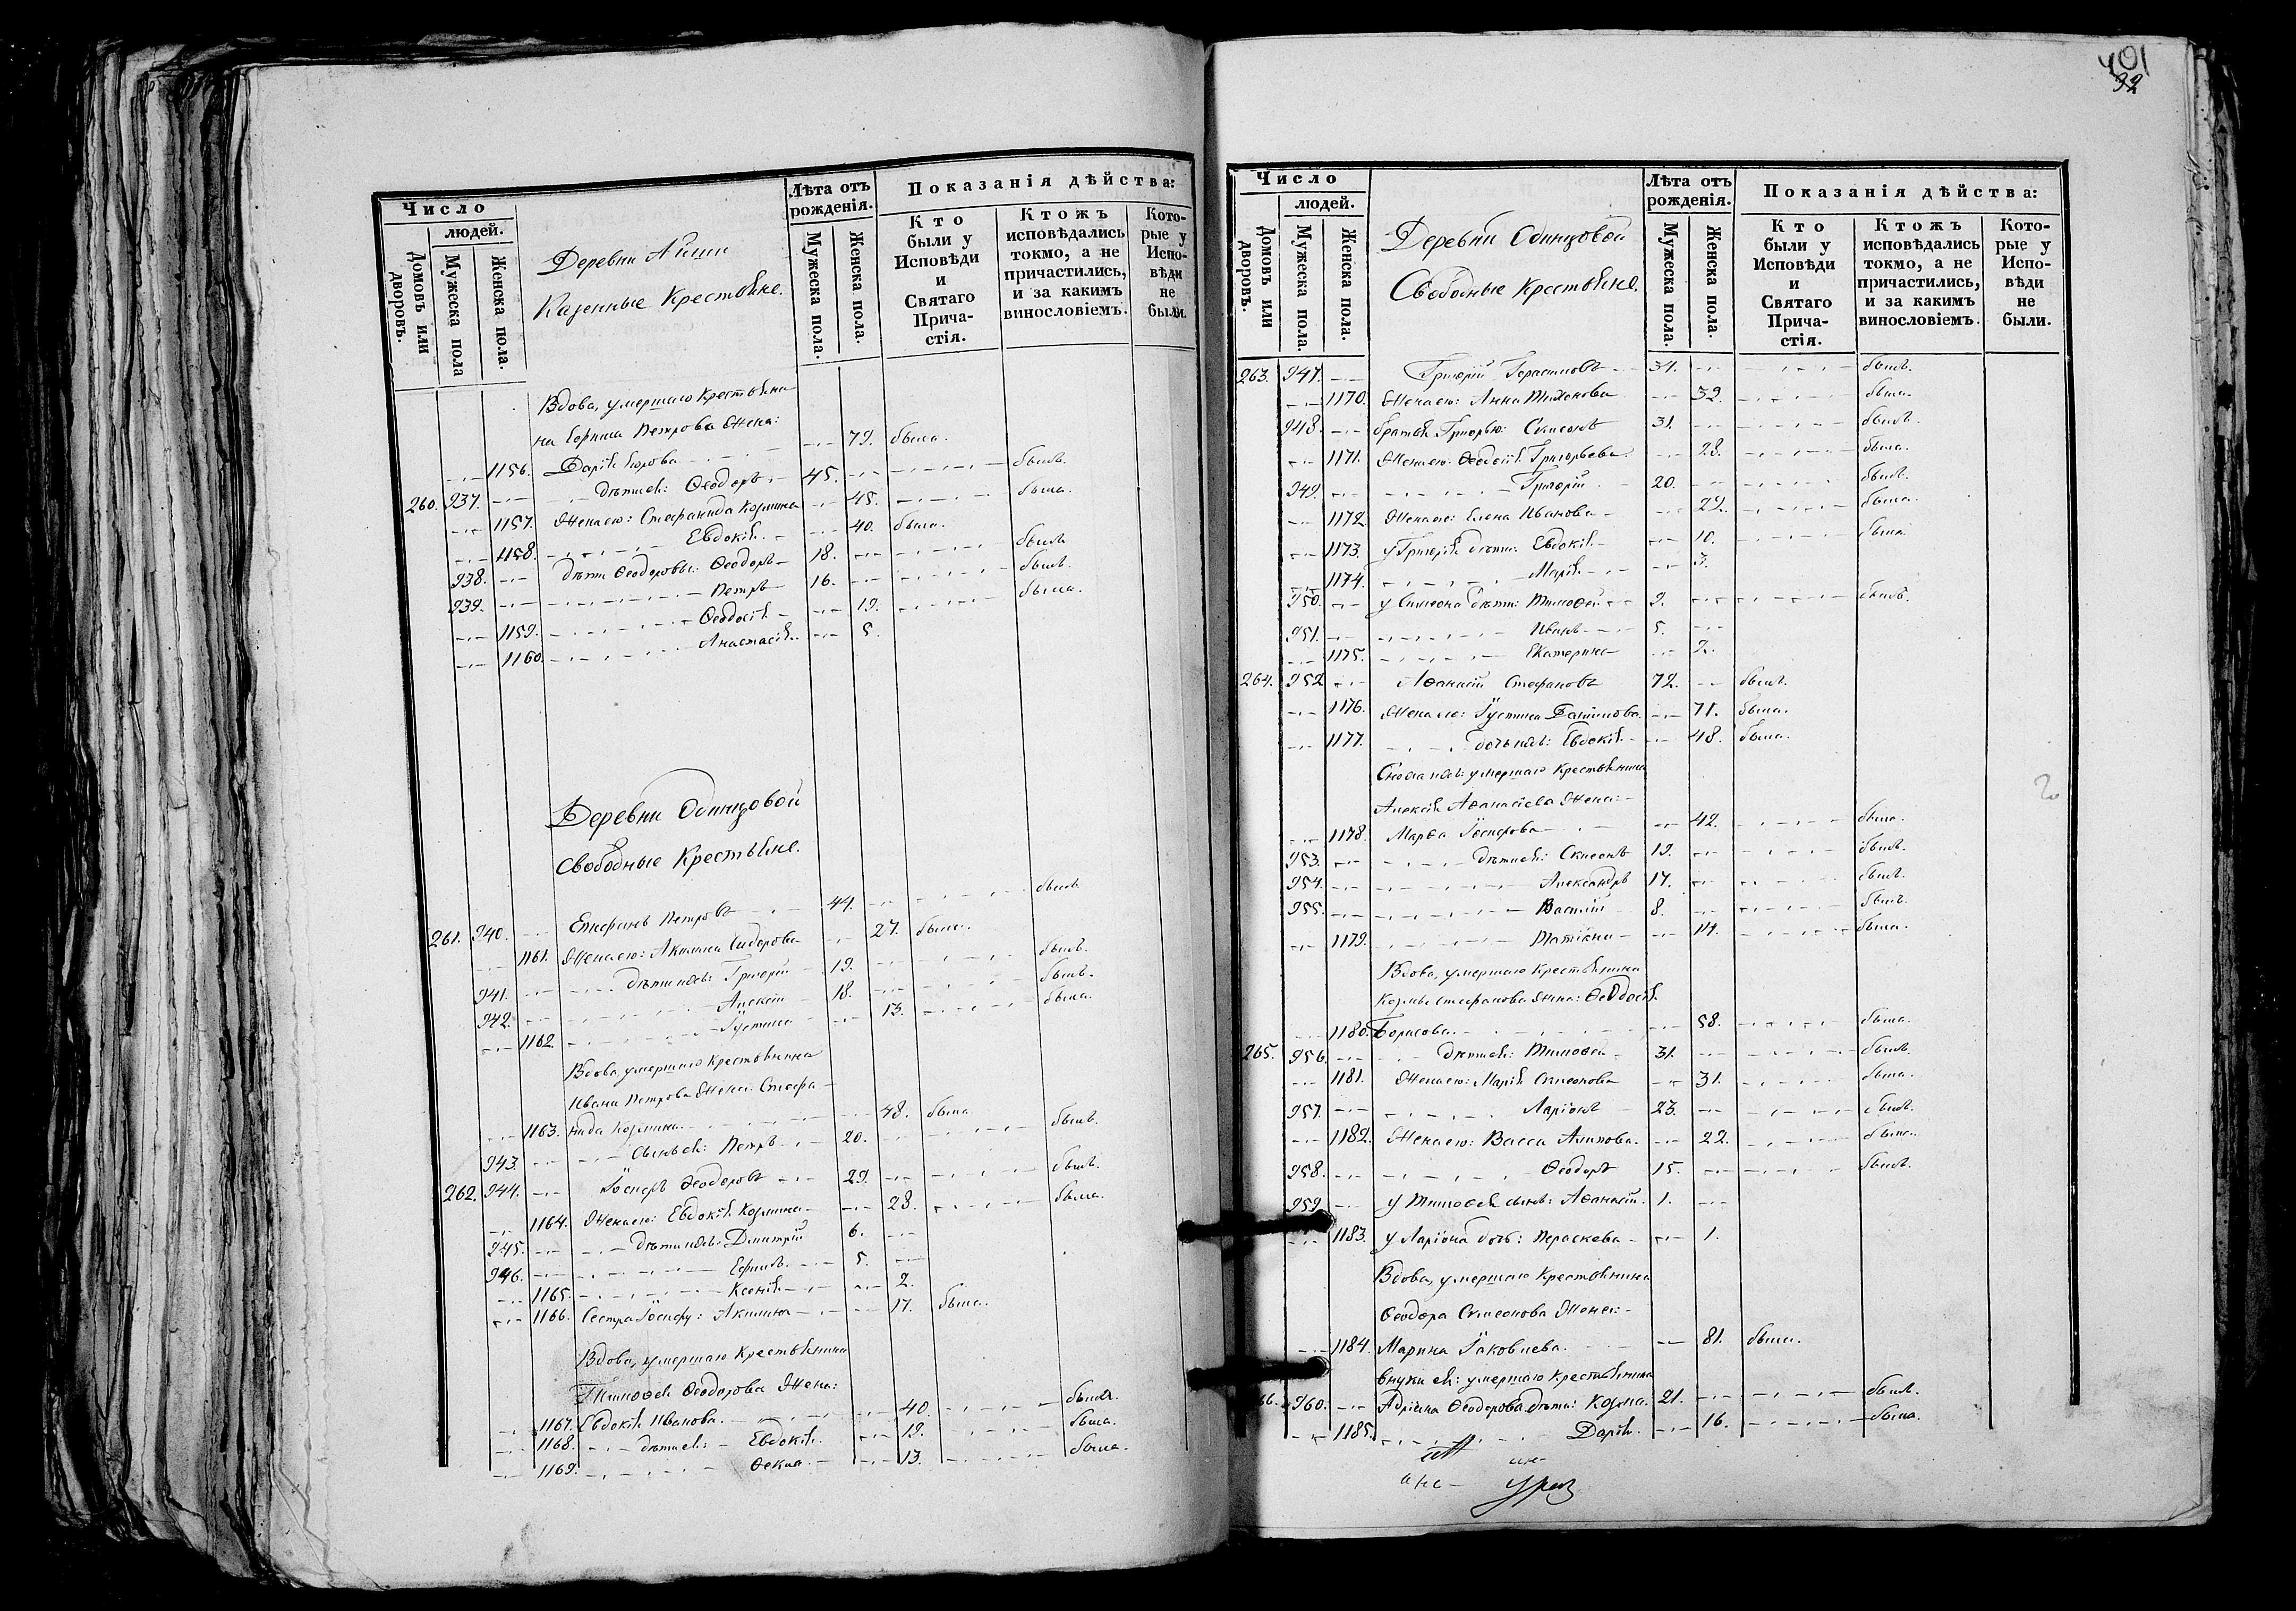 Число
людей.
Домовъ или дворовъ.
Мужеска пола
Женска пола.
Деревни
Казенные Крестьяне.
Лѣта отъ рожденія.
Мужеска пола.
Женска пола.
Показанія дѣйства:
Кто были у Исповѣди и Святаго Прича-стія.
Ктожъ исповѣдались токмо, а не причастились, и за какимъ винословіемъ.
Кото-рые у Испо-вѣди не были.
Вдова, умершаго Крестьяни
на Петрова Жена:
1156. Дарія 79. была.
260. 937. дѣти ея: Ѳеодоръ 45. былъ.
1157. Жена его: Стефанида Козмина 45. была.
1158. Евдокія 40. была.
938. дѣти Ѳеодоровы: Ѳеодоръ 18. былъ
939. Петръ 16. былъ.
1159. Ѳеодосія 19. была.
1160. Анастасія 5.
Деревни Одинцовой
Свободные Крестьяне.
261. 940. Петровъ 44. былъ
1161. Жена его: Акилина Сидорова 27. была.
941. дѣти ихъ: Григорій 19. былъ.
942. Алексій 18. былъ.
1162. Іустина 13. была.
Вдова, умершаго Крестьянина
Ивана Петрова Жена: Стефа-
1163. нида Козмина 48. была
943. Сынъ ея: Петръ 20. былъ.
262. 944. Іосифъ Ѳеодоровъ 29. былъ.
1164. Жена его: Евдокія Козмина 28. была.
945. дѣти ихъ: Дмитрій 6.
946. Ефимъ 5.
1165. Ксенія 2.
1166. Сестра Іосифу: Акилина 17. была.
Вдова, умершаго Крестьянина
Тимоѳея Ѳеодорова Жена:
1167. Евдокія Иванова. 40. была.
1168. дѣти ея: Евдокія 19. была.
1169. Ѳекла 13. была.
401
92
Число
людей.
Домовъ или дворовъ.
Мужеска пола.
Женска пола.
Деревни Одинцовой
Свободные Крестьяне.
Лѣта отъ рожденія.
Мужеска пола.
Женска пола.
Показанія дѣйства:
Кто были у Исповѣди и Святаго Прича-стія.
Ктожъ исповѣдались токмо, а не причастились, и за какимъ винословіемъ.
Кото-рые у Испо-вѣди не были.
263. 947. Григорій Герасимовъ 34. былъ.
1170. Жена его: Анна Тихонова 32. была.
948. братья Григорью: Симеонъ 31. былъ.
1171. Жена его: Ѳеодосія Григорьева 28. была.
949. Григорій 20. былъ.
1172. Жена его: Елена Иванова 22. была.
1173. у Григорія дѣти: Евдокія 10. была.
1174. Марія 3.
950. у Симеона дѣти: Тимоѳей 9. былъ.
951. Иванъ 5.
1175. Екатерина 2.
264. 952. Аѳанасій Стефановъ 72. былъ.
1176. Жена его: Іустина Данилова 71. была.
1177. дочь ихъ: Евдокія 48. была.
Сноха ихъ: умершаго Крестьянина
Алексія Аѳанасіева Жена:
1178. Марѳа Іосифова 42. была.
953. дѣти ея: Симеонъ 19. былъ.
954. Александръ 17. былъ.
955. Василій 8. былъ.
1179. Татіана 14. была.
Вдова, умершаго Крестьянина
Козмы Стефанова Жена: Ѳеодосія
1180. Борисова. 58. была.
265. 956. дѣти ея: Тимоѳей 31. былъ.
1181. Жена его: Марія Симеонова 31. была.
957. Ларіонъ 23. былъ.
1182. Жена его: Васса Алипова. 22. была.
958. Ѳеодоръ 15. былъ.
959. у Тимоѳея сынъ: Аѳанасій. 1.
1183. у Ларіона дочь: Параскева 1.
Вдова, умершаго Крестьянина
Ѳеодора Симеонова Жена:
1184. Марина Іаковлева. 81. была.
внуки ея: умершаго Крестьянина
960. Адріана Ѳеодорова дѣти: Козма. 21. былъ.
1185. Дарія. 16. была.